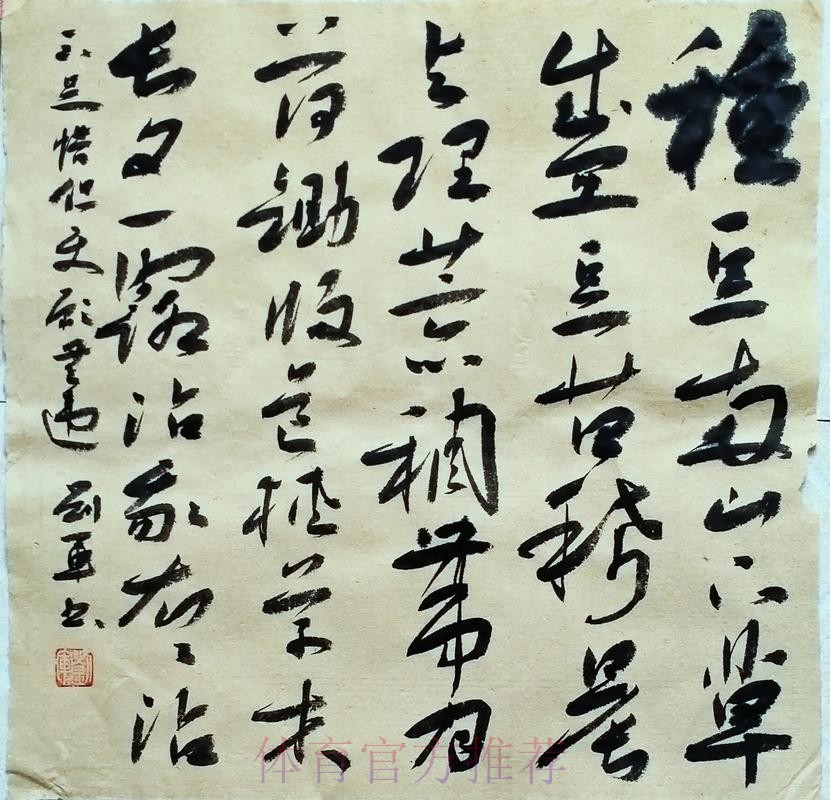 種豆南山下草
盛豆苗稀晨
興理荒穢帶月
荷鋤歸道狹草木
長夕露沾我衣〻沾
不足惜但使願無違 刘軍书
体育官方推荐